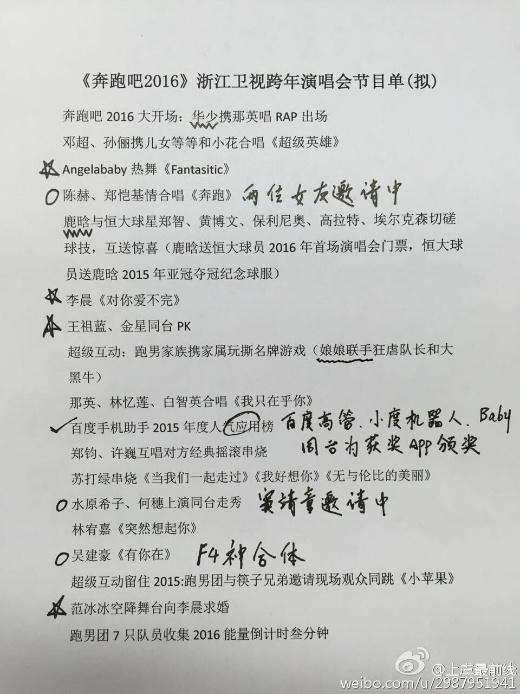 《奔跑吧2016》浙江卫视跨年演唱会节目单(拟)
奔跑吧 2016 大开场：华少携那英唱 RAP 出场
邓超、孙俪携儿女等等和小花合唱《超级英雄》
☆Angelababy 热舞《Fantasitic》
○陈赫、郑恺基情合唱《奔跑》两位女友邀请中
鹿晗与恒大球星郑智、黄博文、保利尼奥、高拉特、埃尔克森切磋
球技，互送惊喜（鹿晗送恒大球员 2016 年首场演唱会门票，恒大球
员送鹿晗 2015 年亚冠夺冠纪念球服）
☆李晨《对你爱不完》
☆王祖蓝、金星同台 PK
超级互动：跑男家族携家属玩撕名牌游戏（娘娘联手狂虐队长和大
黑牛）
那英、林忆莲、白智英合唱《我只在乎你》
✓百度手机助手 2015 年度人气应用榜 百度高管、小度机器人、Baby
同台为获奖App颁奖
郑钧、许巍互唱对方经典摇滚串烧
苏打绿串烧《当我们一起走过》《我好想你》《无与伦比的美丽》
○水原希子、何穗上演同台走秀 窦靖童邀请中
林宥嘉《突然想起你》
○吴建豪《有你在》 F4神合体
超级互动留住 2015:跑男团与筷子兄弟邀请现场观众同跳《小苹果》
☆范冰冰空降舞台向李晨求婚
跑男团 7 只队员收集 2016 能量倒计时叁分钟
@上虞最前线
weibo.com/u/2987951941